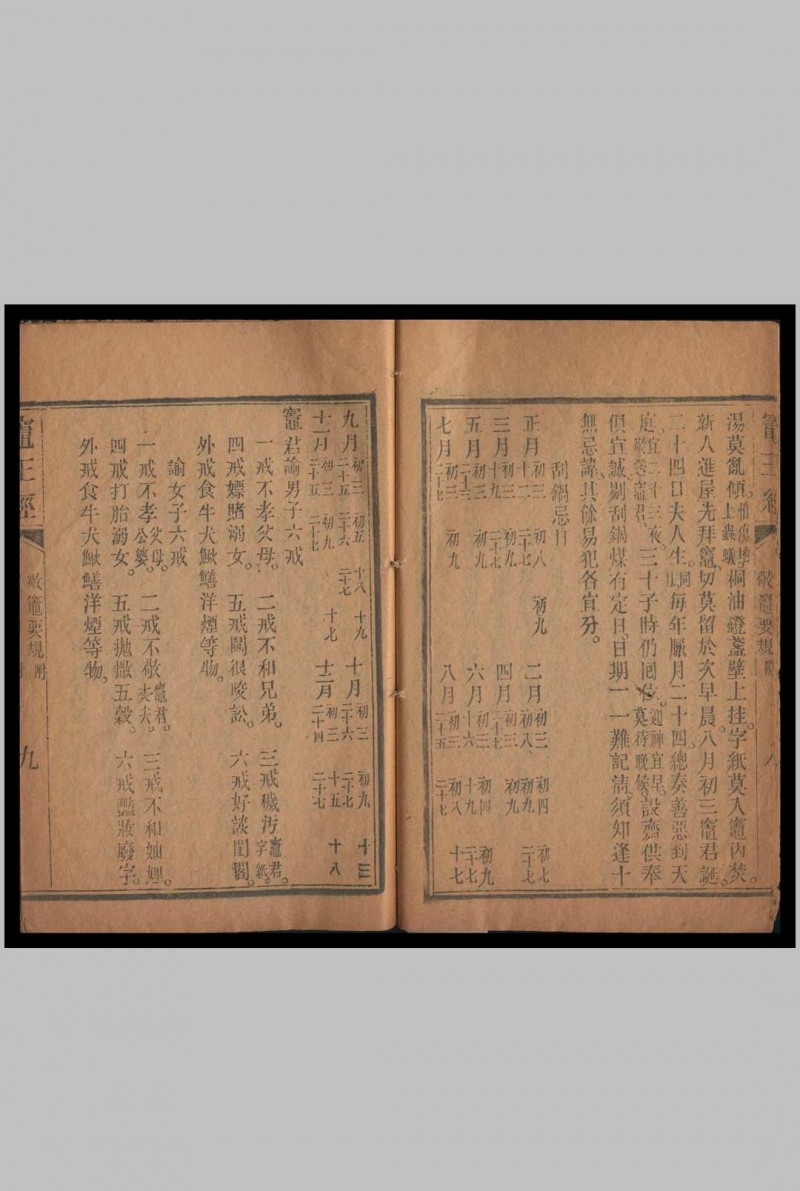 竈王經
敬竈要規 附
湯莫亂傾。上蟲蟻桐油燈盞壁上挂。字紙莫入竈內焚。
新人進屋先拜竈。切莫留於次早晨。八月初三竈君誕。
二十四日夫人生。每年臘月二十四。總奏善惡到天
庭。宜二十三夜。竈君。三十子時仍回位。迎神宜早。莫待晚候。設齋供奉
俱宜誠。剔刮鍋煤有定日。日期一一難記清。須知逢十
無忌諱。其餘易犯各宜分。
刮鍋忌日
正月 初三 十二 初八 二十七 初九 二月 初三 初八 初四 初九 初七 二十七
三月 初三 十九 初九 二十七 四月 初三 二十七 初九
五月 初三 二十三 初九 六月 初三 十六 初四 十九 初九 二十七
七月 初三 二十七 初九 八月 初三 二十五 初八 二十七 十七
九月 初三 二十五 初五 二十六 十八 二十七 十九 十月 初三 二十六 初九 二十七 十四
十一月 初三 二十五 初九 二十七 十七 十二月 初三 二十四 十五 二十七 十八
竈君諭男子六戒
一戒不孝父母。 二戒不和兄弟。 三戒穢汚竈君。字紙。
四戒嫖賭溺女。 五戒鬬很唆訟。 六戒好談閨閫。
外戒食牛犬鰍鱔洋煙等物。
諭女子六戒
一戒不孝父母。公婆。 二戒不敬竈君。丈夫。 三戒不和妯娌。
四戒打胎溺女。 五戒拋撒五穀。 六戒豔妝廢字。
外戒食牛犬鰍鱔洋煙等物。
竈王經
敬竈要規 附
九